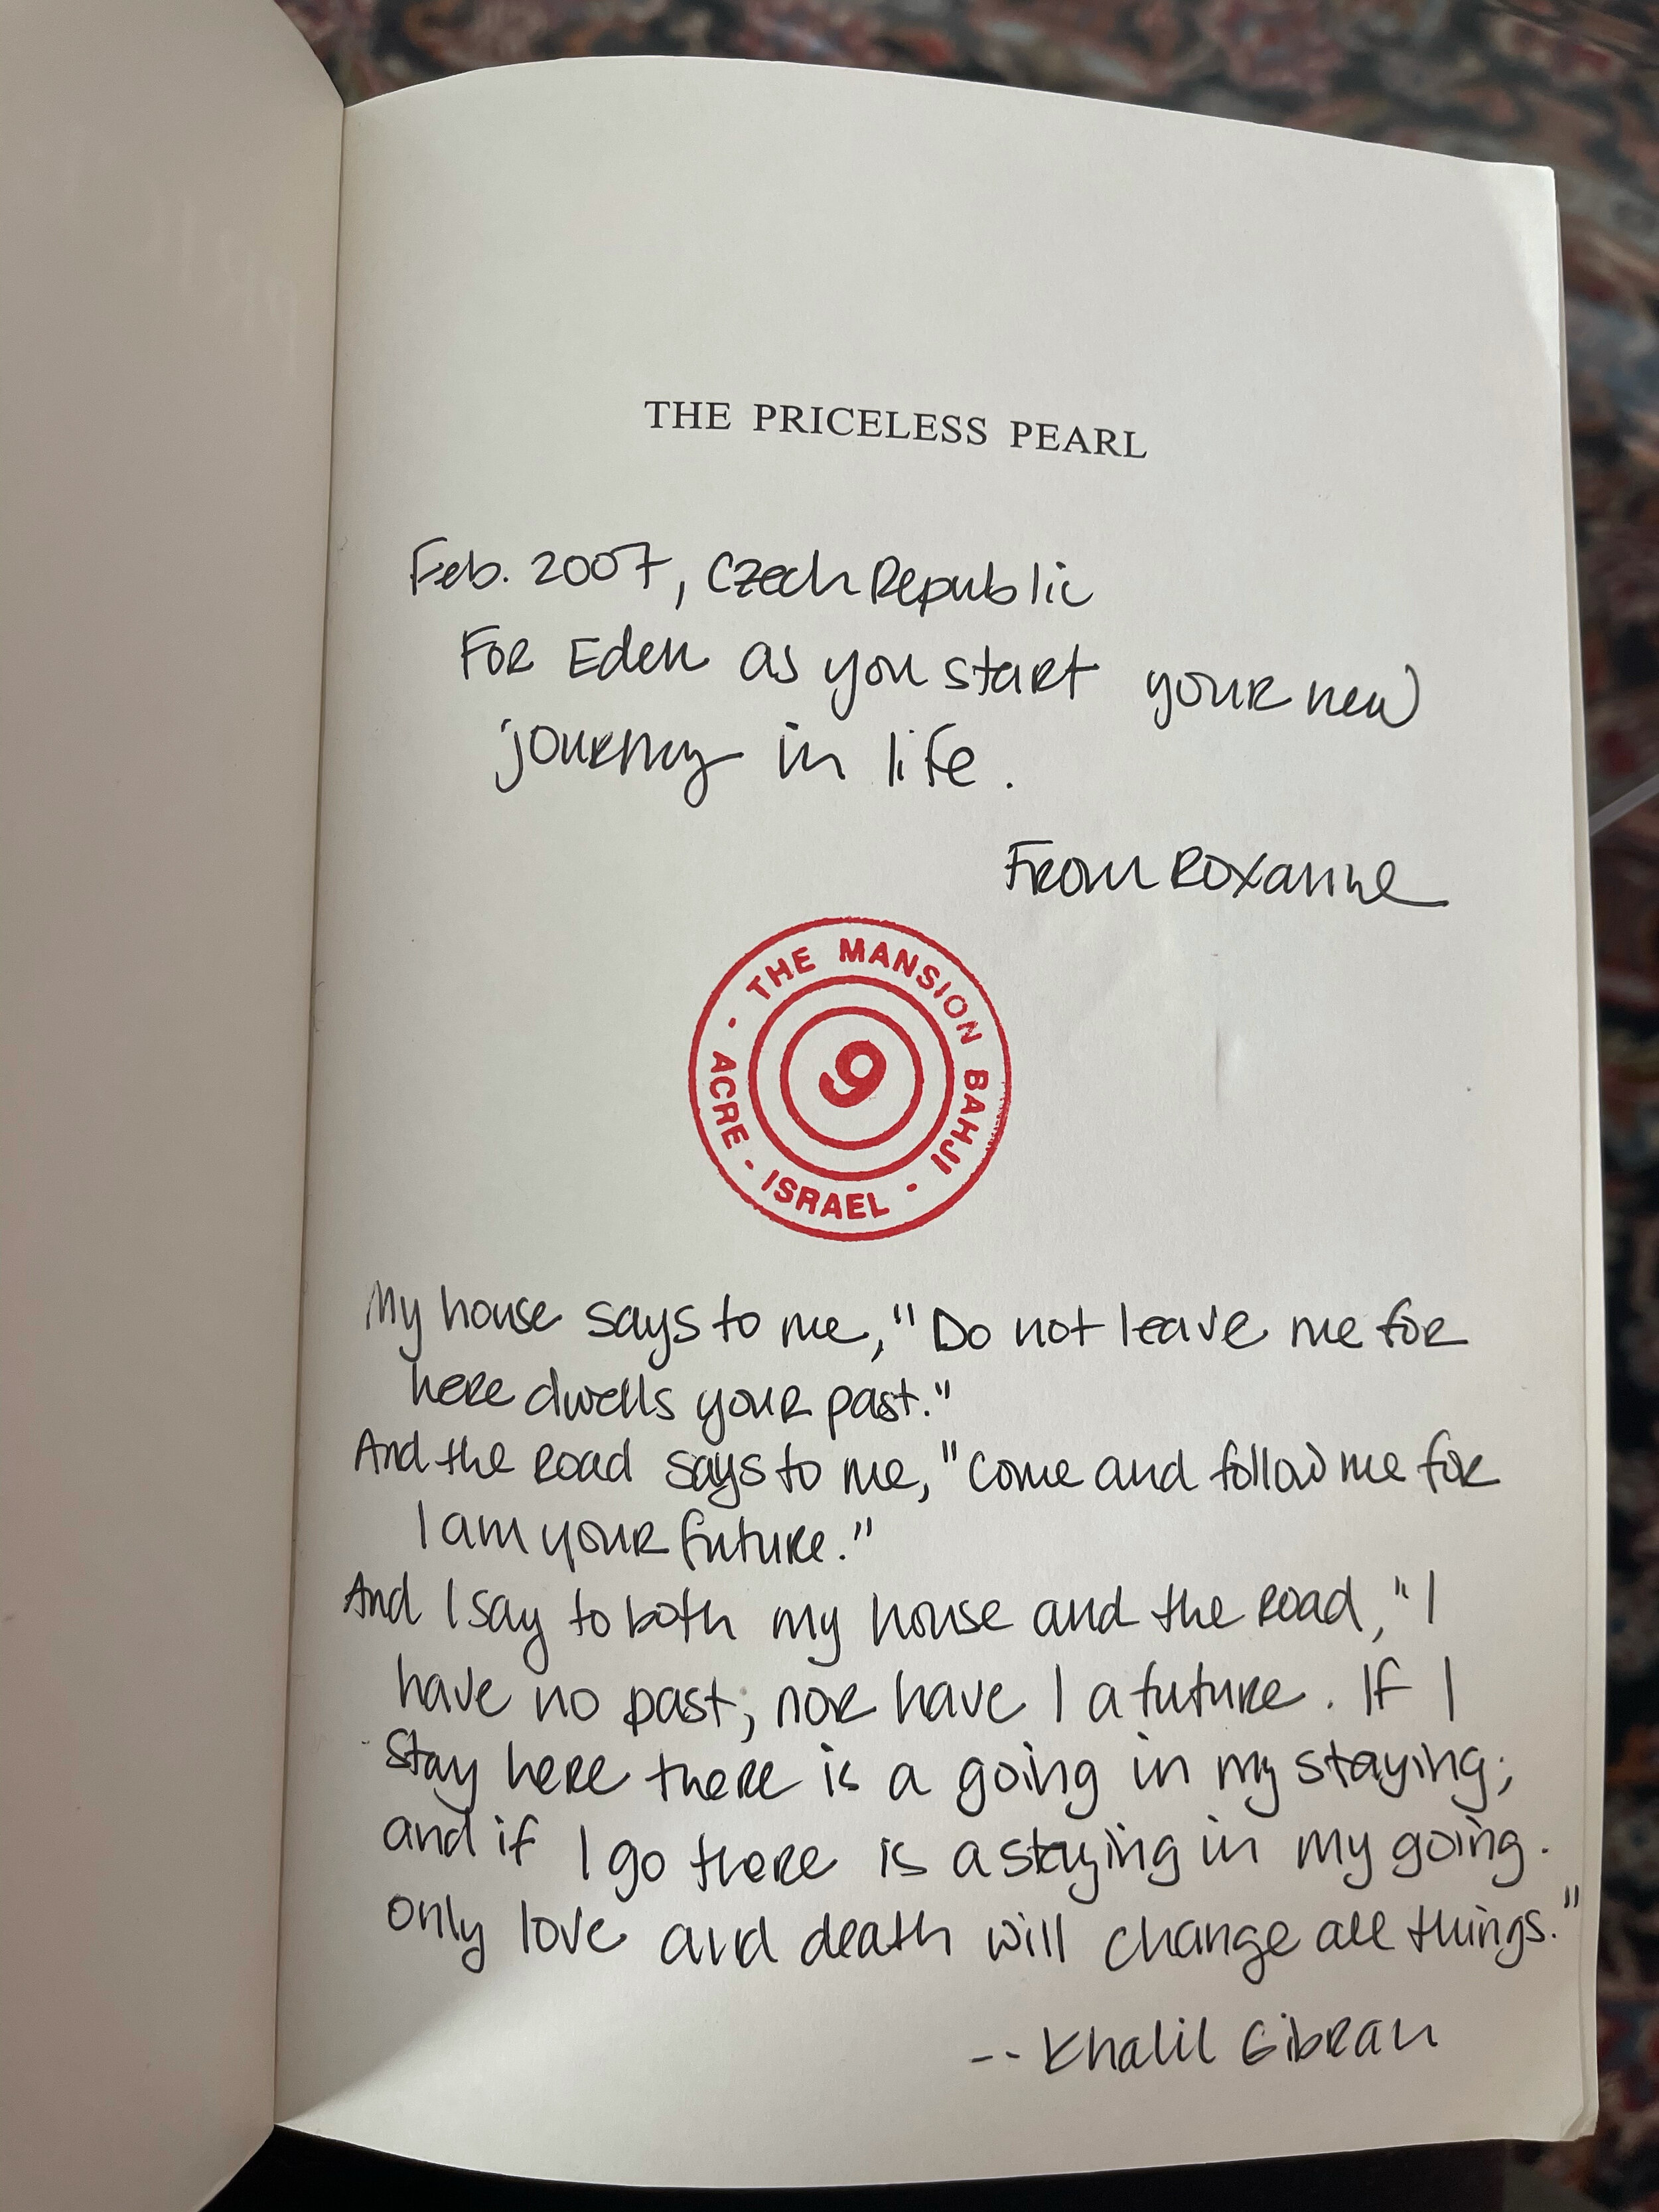 THE PRICELESS PEARL
Feb. 2007, Czech Republic
For Eden as you start your new
journey in life.
From Roxanne
THE MANSION BAHJI · ISRAEL · ACRE ·
9
My house says to me, "Do not leave me for
here dwells your past."
And the road says to me, "Come and follow me for
I am your future."
And I say to both my house and the road, "I
have no past; nor have I a future. If I
stay here there is a going in my staying;
and if I go there is a staying in my going.
Only love and death will change all things."
-- Khalil Gibran